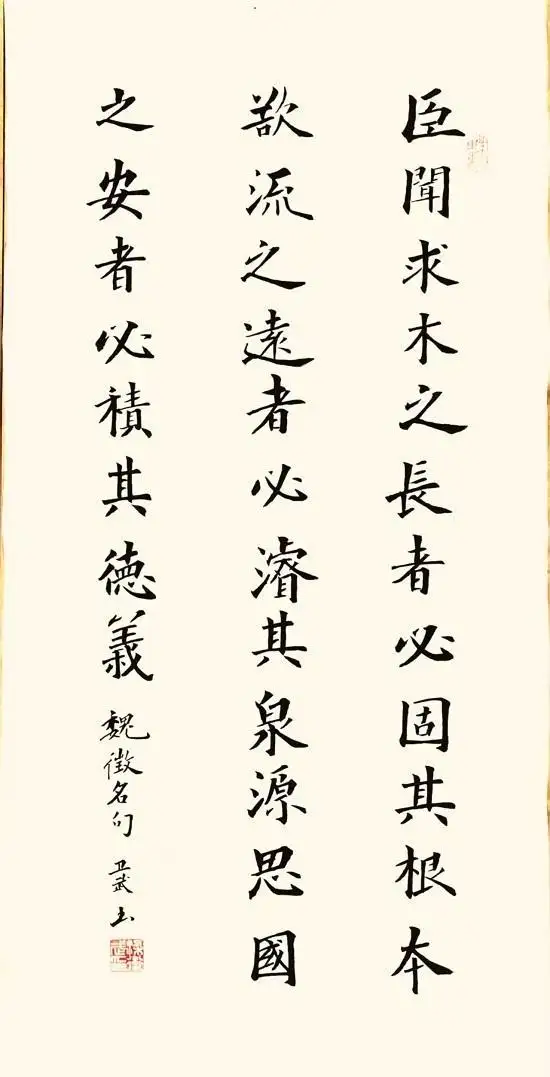 臣聞求木之長者必固其根本
欲流之遠者必濬其泉源思國
之安者必積其德義
魏徵名句 卫武书